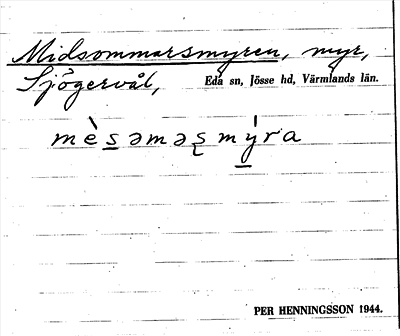 Midsommarsmyren, myr,
Sjögervål, Eda sn, Jösse hd, Värmlands län.
mèsəməʂmýra
PER HENNINGSSON 1944.